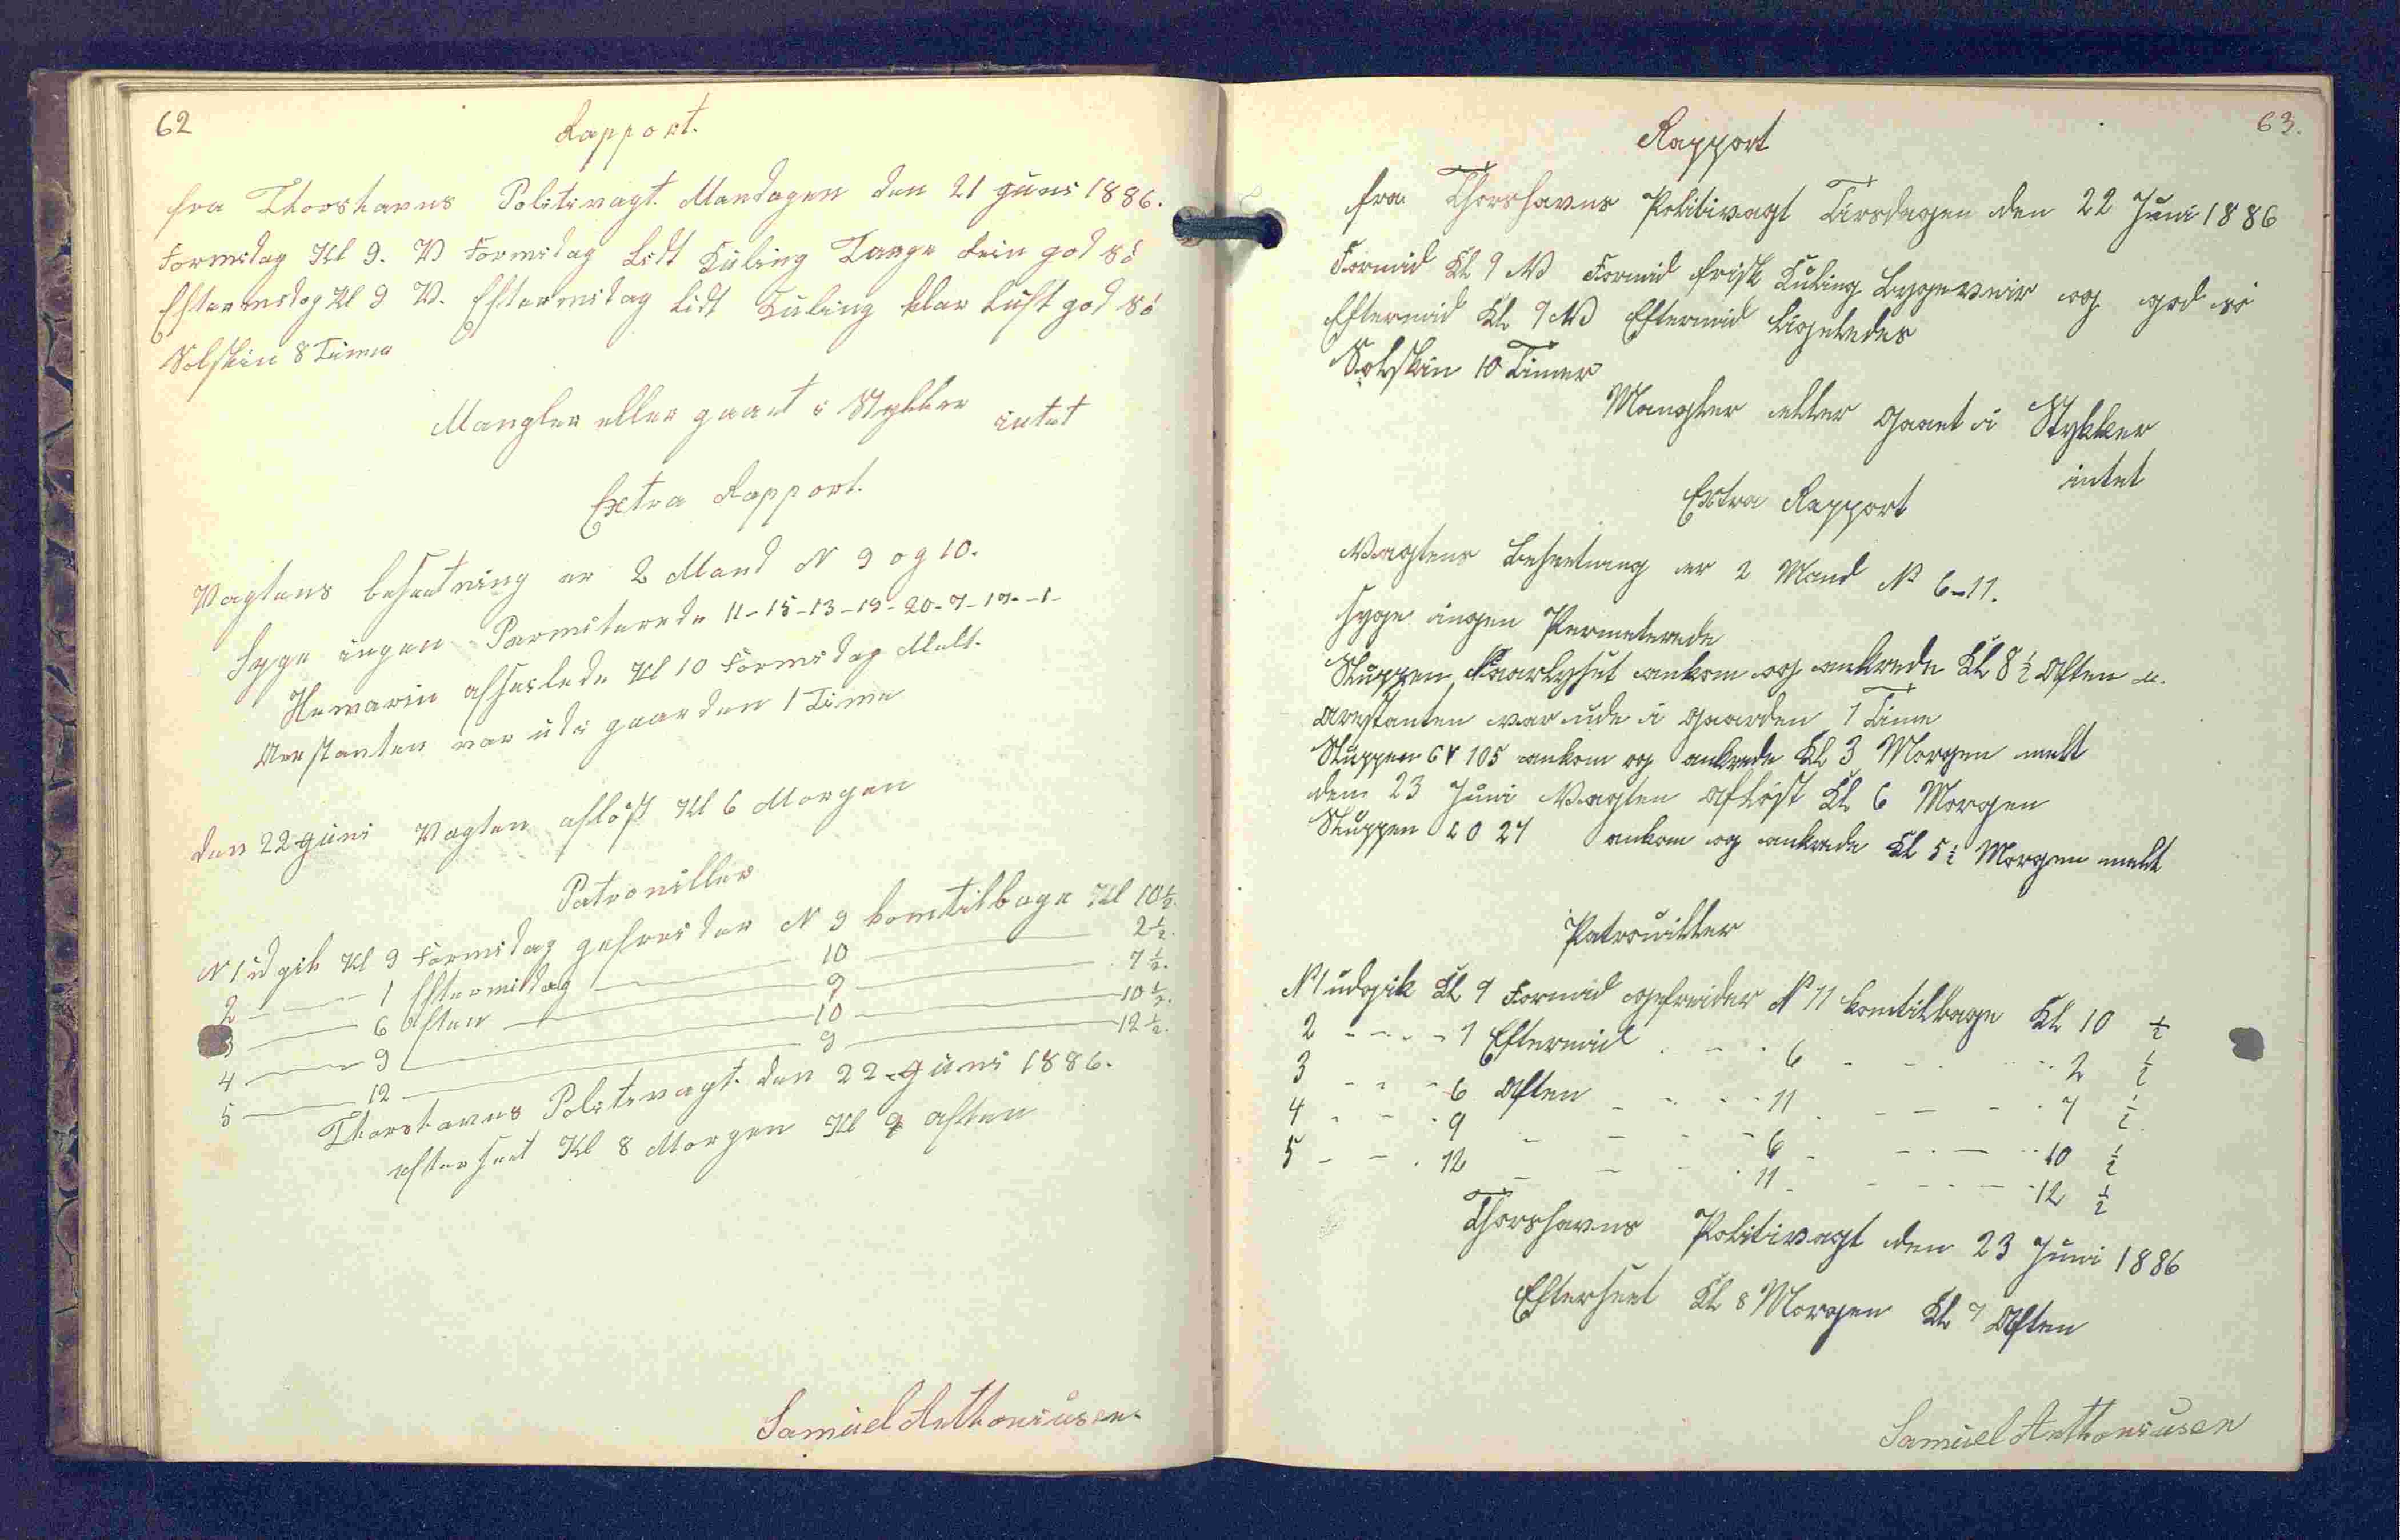 62
Rapport.
fra Thorshavns Politivagt. Mandagen den 21 Juni 1886.
Formidag Kl 9. V Formidag Lidt Kuling god Sö
Eftermidag Kl 9 V. Eftermidag Lidt Kuling klar Luft god Sö
Solskin 8 Timer
Mangler eller gaaet i Stykker
intet
Extra Rapport.
Vagtens besætning er 2 Mand N 9 og 10.
Syge ingen Permiterede 11-15-13-19-20-7-17-1-
afseilede Kl 10 Formidag Melt.
Arestanten var ude i gaarden 1 Time
den 22 Juni Vagten aflöst Kl 6 Morgen
Patroviller
N 1 udgik Kl 9 Formidag gefreider N 9 kom tilbage Kl 10½.
2 — 1 Eftermidag — 10 — 2½.
3 — 6 Aften — 9 — 7½.
4 — 9 — 10 — 10½.
5 — 12 — 9 — 12½.
Thorshavns Politivagt. den 22 Juni 1886.
efterseet Kl 8 Morgen Kl 9 aften
Samuel Anthoniusen.
63.
Rapport
fra Thorshavns Politivagt Tirsdagen den 22 Juni 1886
Formid Kl 9 NV Formid frisk Kuling Bygeveir og god sö
Eftermid Kl 9 NV Eftermid Ligeledes
Solskin 10 Timer
Mangler eller Gaaet i Stykker
intet
Extra Rapport
Vagtens Besætning er 2 Mand N 6-11.
Syge ingen Permeterede
Sluppen ankom og ankrede Kl 8½ Aften
Arestanten var ude i Gaarden 1 Time
Sluppen GV 105 ankom og ankrede Kl 3 Morgen melt
den 23 Juni Vagten Aflöst Kl 6 Morgen
Sluppen LO 27 ankom og ankrede Kl 5½ Morgen meldt
Patrouiller
N 1 udgik Kl 9 Formid gefreider N 11 kom tilbage Kl 10 ½
2 - - - - 1 Eftermid - - - 6 - - - 2 ½
3 - - - 6 Aften - - - 11 - - - 7 ½
4 - - - 9 - - - 6 - - - 10 ½
5 - - - 12 - - - 11 - - - 12 ½
Thorshavns Politivagt den 23 Juni 1886
Efterseet Kl 8 Morgen Kl 9 Aften
Samuel Anthoniusen